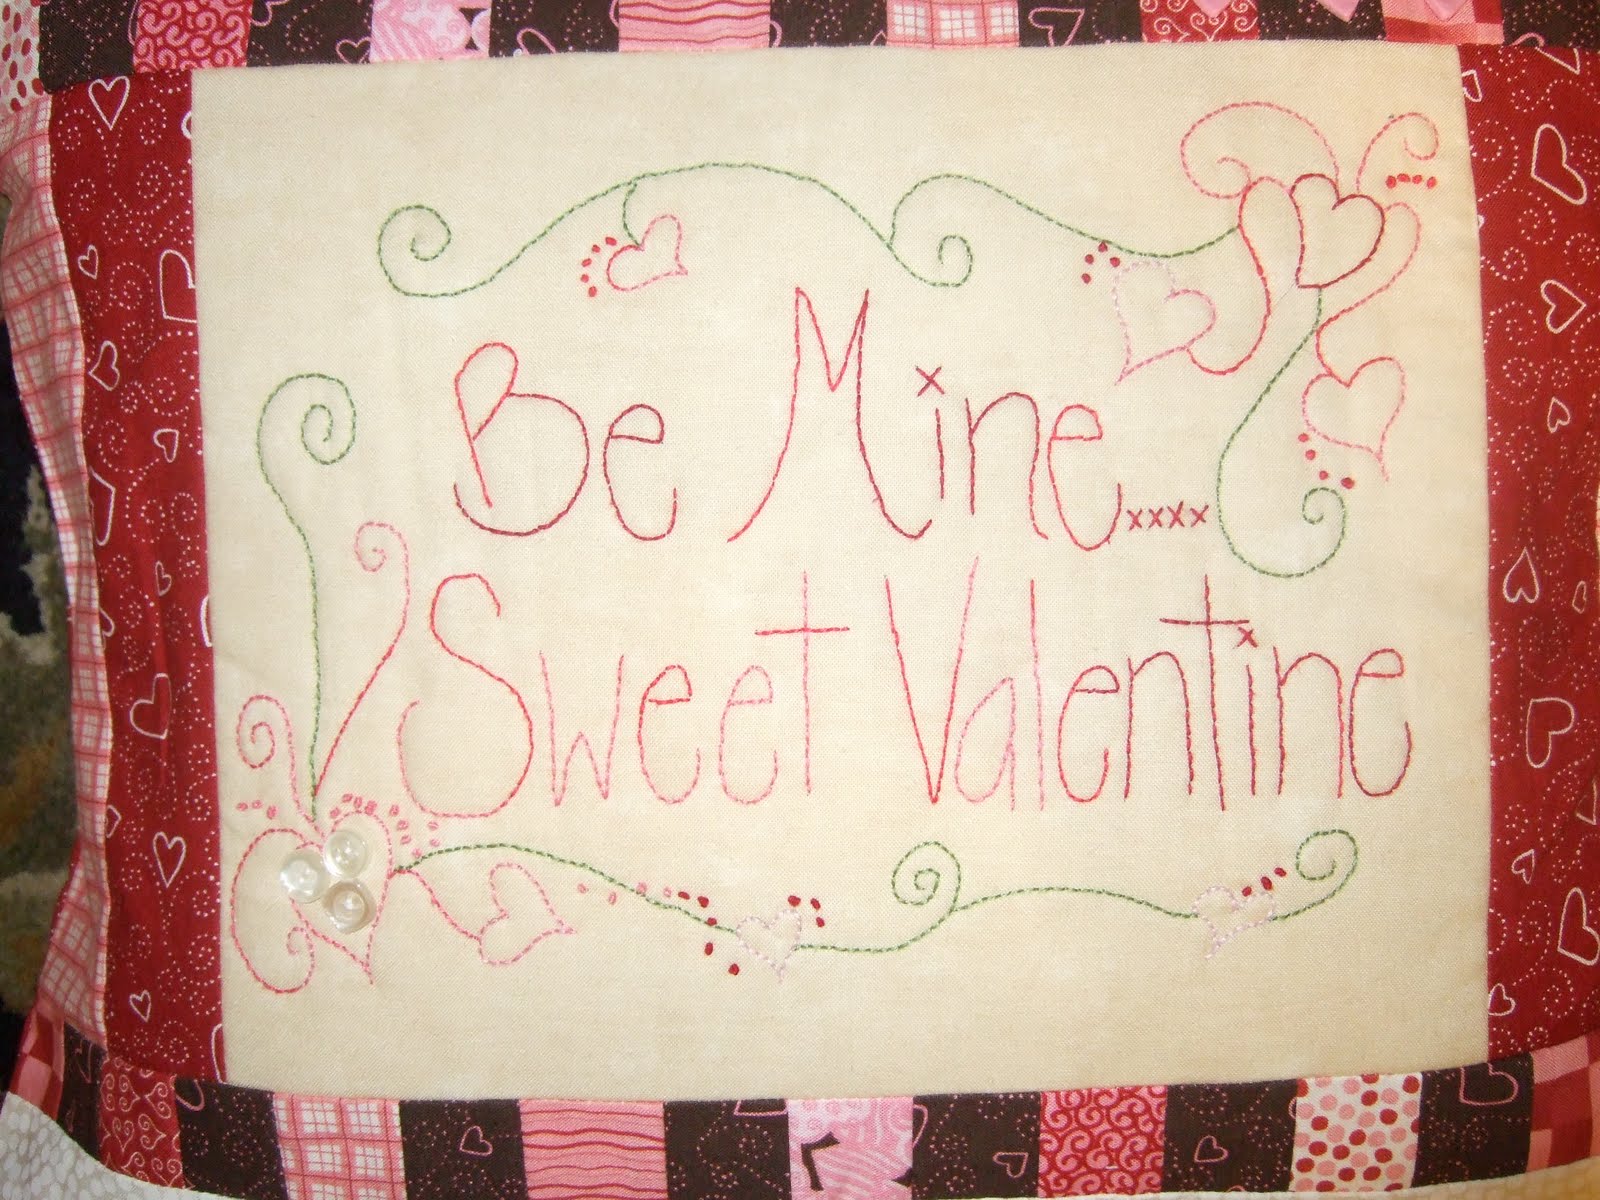 Be Mine....xxxx
Sweet Valentine